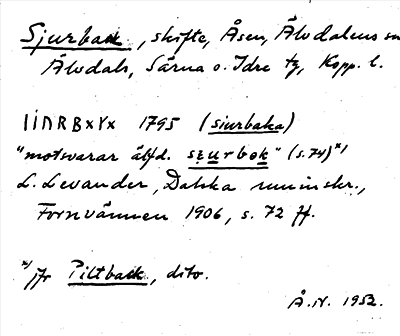 Sjurback, skifte, Åsen, Älvdalens sn
Älvdals, Särna o. Idre tg, Kopp. l.
ᛁᛁᚢᚱᛒ×ᚴ× 1795 (siurbaka)
"motsvarar älfd. sturbok" (s. 74)*)
L. Levander, Dalska runinskr.,
Fornvännen 1906, s. 72 ff.
*) jfr Piltback, dito.
Å.N. 1952.